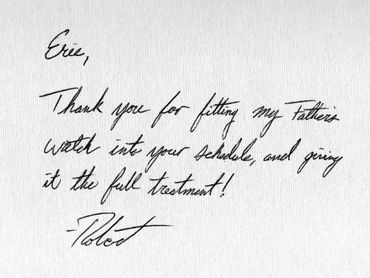 Eric,
Thank you for fitting my Father's
watch into your schedule, and giving
it the full treatment!
-Robert